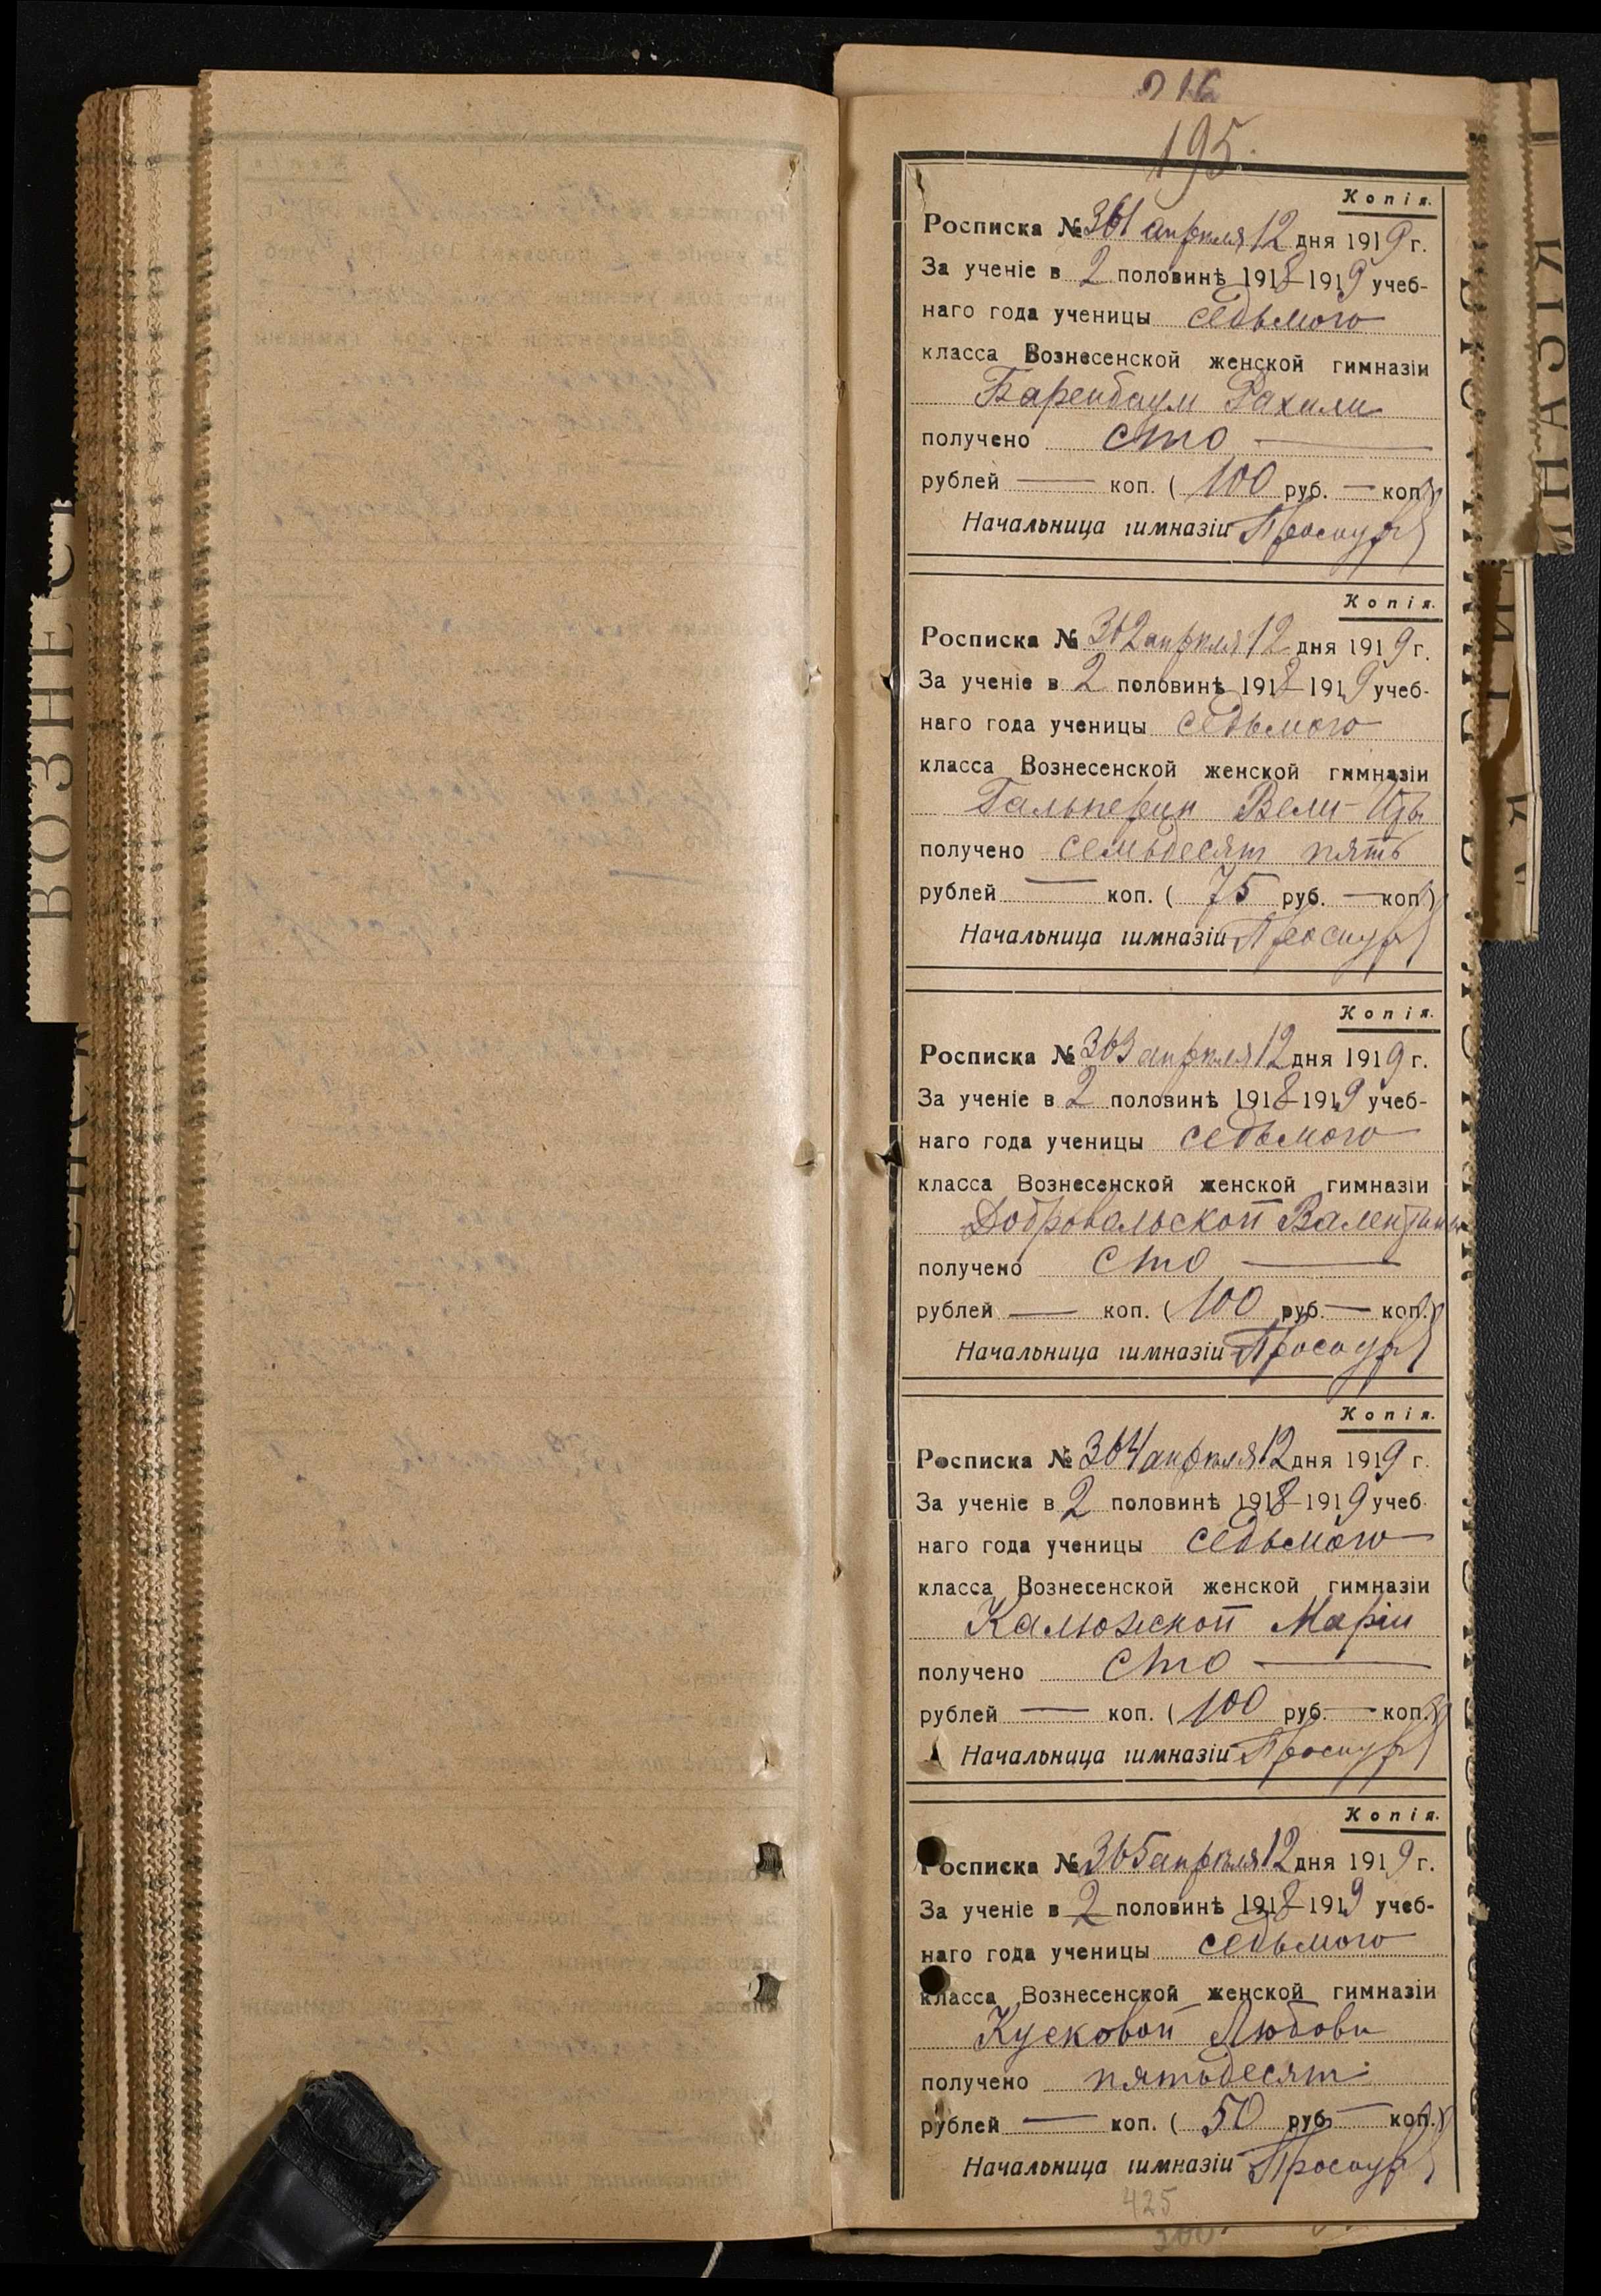 195.
Копія.
Росписка № 361 апреля 12 дня 1919 г.
За ученіе в 2 половинѣ 1918-1919 учеб-
наго года ученицы седьмого
класса Вознесенской женской гимназіи
Баренбаум Рахили
получено сто
рублей — коп. (100 руб. — коп.)
Начальница гимназіи
Копія.
Росписка № 362 апреля 12 дня 1919 г.
За ученіе в 2 половинѣ 1918-1919 учеб-
наго года ученицы седьмого
класса Вознесенской женской гимназіи
Гальперин Вели-
получено семьдесят пять
рублей — коп. (75 руб. — коп.)
Начальница гимназіи
Копія.
Росписка № 363 апреля 12 дня 1919 г.
За ученіе в 2 половинѣ 1918-1919 учеб-
наго года ученицы седьмого
класса Вознесенской женской гимназіи
Добровольской Валентины
получено сто
рублей — коп. (100 руб. — коп.)
Начальница гимназіи
Копія.
Росписка № 364 апреля 12 дня 1919 г.
За ученіе в 2 половинѣ 1918-1919 учеб-
наго года ученицы седьмого
класса Вознесенской женской гимназіи
Калюжской Маріи
получено сто
рублей — коп. (100 руб. — коп.)
Начальница гимназіи
Копія.
Росписка № 365 апреля 12 дня 1919 г.
За ученіе в 2 половинѣ 1918-1919 учеб-
наго года ученицы седьмого
класса Вознесенской женской гимназіи
Кусковой Любови
получено пятьдесят
рублей — коп. (50 руб. — коп.)
Начальница гимназіи
425
ВОЗНЕС